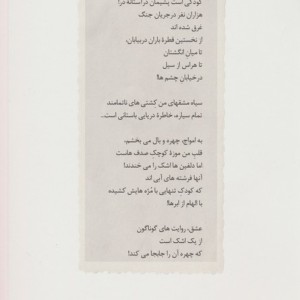 کودکی است پشیمان در آستانه در!
هزاران نفر در جریان جنگ
غرق شده اند
از نخستین قطرهٔ باران در بیابان،
تا میان انگشتان
تا هراس از سیل
در خیابانِ چشم ها!
سیاه مشقهای من کشتی های ناتمامند،
تمام سیاره، خاطرهٔ دریایی باستانی است..
به امواج، چهره و بال می بخشم،
قلب من موزهٔ کوچک صدف هاست
اما دلفین ها اشک را می خندند!
آنها فرشته های آبی اند
که کودک تنهایی با مژه هایش کشیده
با الهام از ابرها!
عشق، روایت های گوناگون
از یک اشک است
که چهره آن را جابجا می کند!